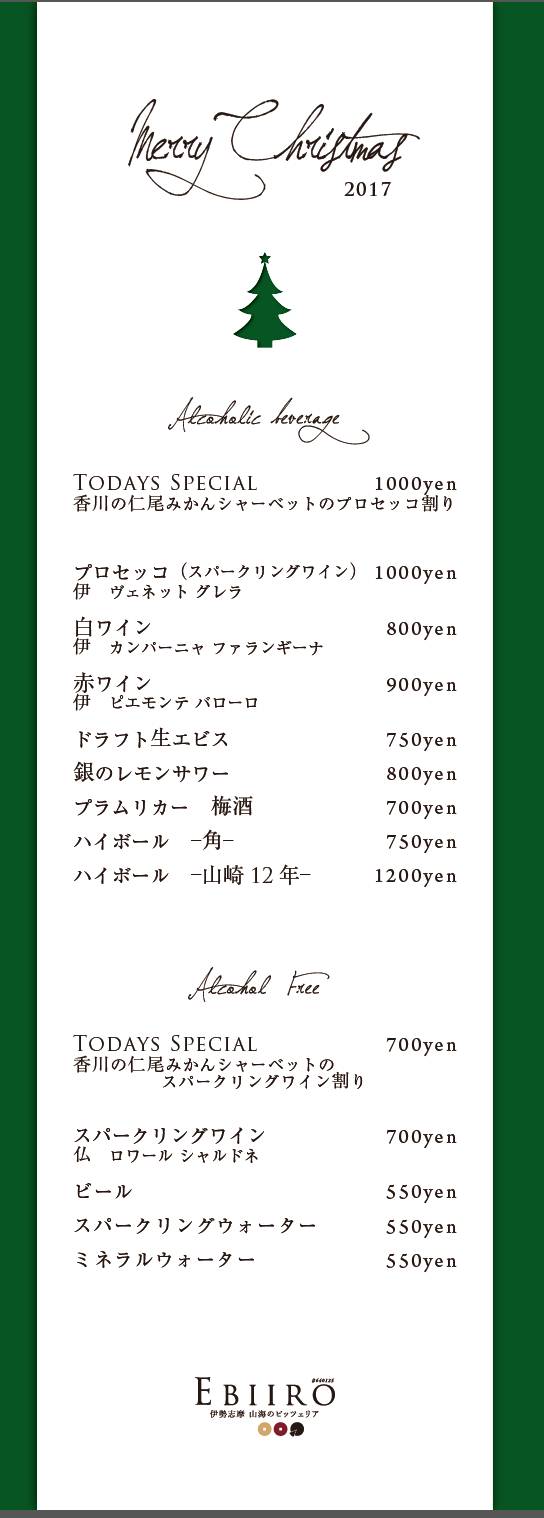 Merry Christmas
2017
Alcoholic beverage
TODAYS SPECIAL 1000yen
香川の仁尾みかんシャーベットのプロセッコ割り
プロセッコ（スパークリングワイン） 1000yen
伊　ヴェネット グレラ
白ワイン 800yen
伊　カンパーニャ ファランギーナ
赤ワイン 900yen
伊　ピエモンテ バローロ
ドラフト生エビス 750yen
銀のレモンサワー 800yen
プラムリカー　梅酒 700yen
ハイボール　−角− 750yen
ハイボール　−山崎 12 年− 1200yen
Alcohol Free
TODAYS SPECIAL 700yen
香川の仁尾みかんシャーベットの
スパークリングワイン割り
スパークリングワイン 700yen
仏　ロワール シャルドネ
ビール 550yen
スパークリングウォーター 550yen
ミネラルウォーター 550yen
EBIIRO
伊勢志摩 山海のピッツェリア